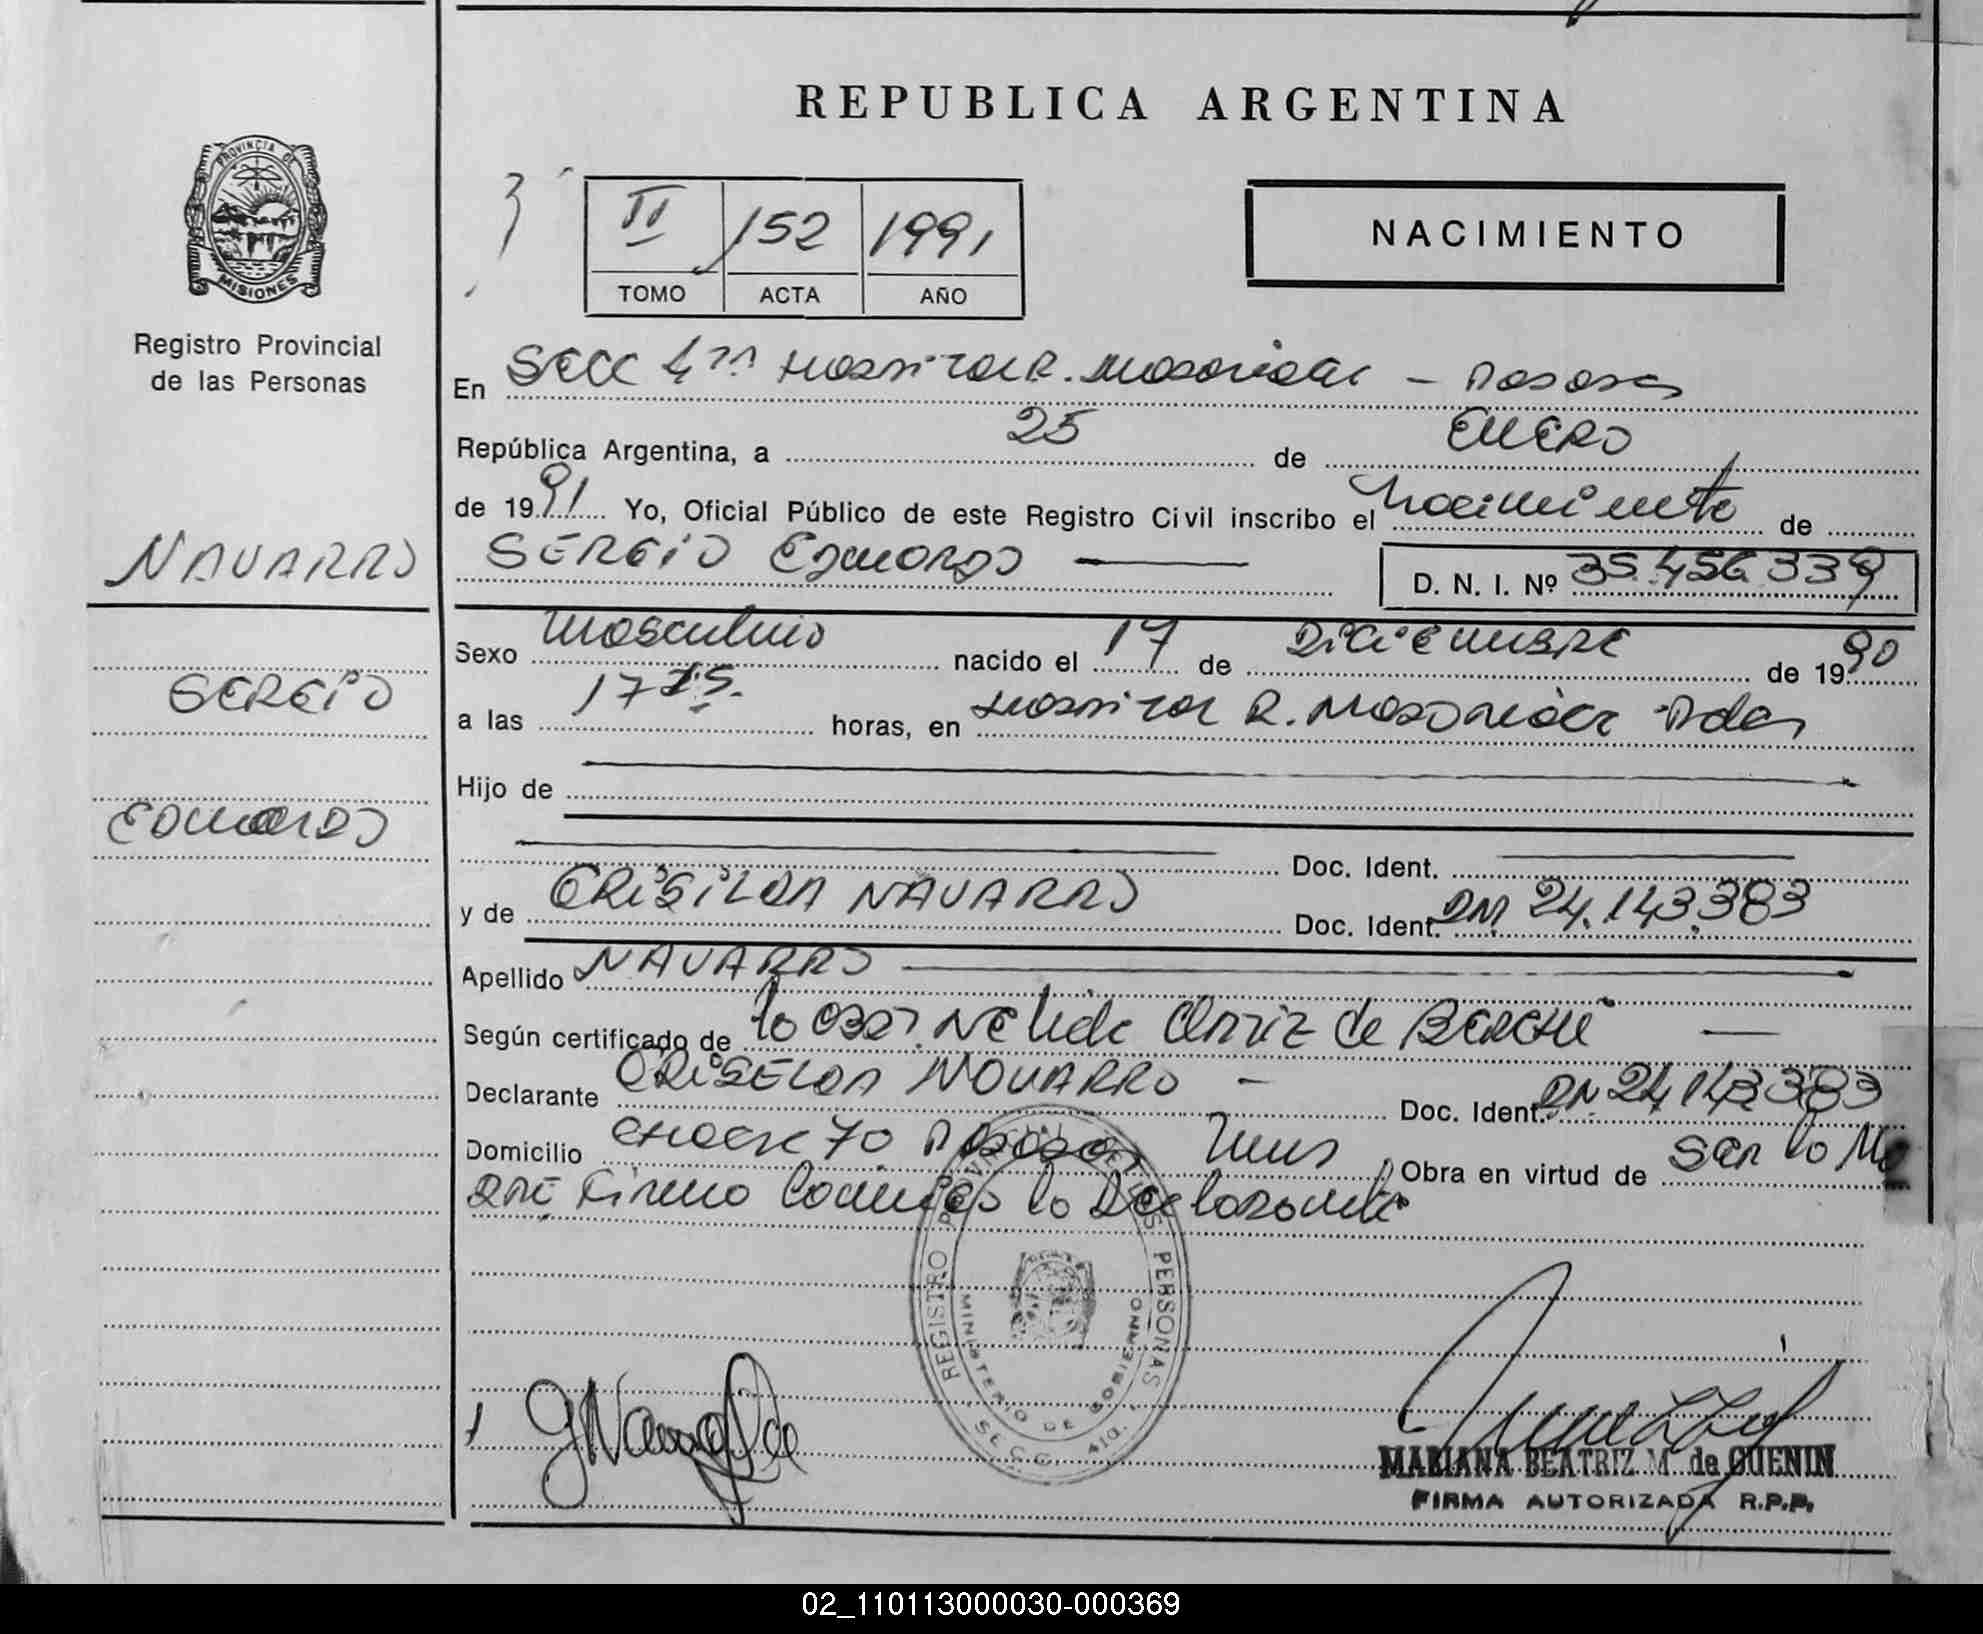 REPUBLICA ARGENTINA
PROVINCIA DE
MISIONES
Registro Provincial
de las Personas
II 152 1991
TOMO ACTA AÑO
NACIMIENTO
En SECC 4ta Hospital R. Madariaga - Posadas
República Argentina, a 25 de ENERO
de 1991 Yo, Oficial Público de este Registro Civil inscribo el nacimiento de
NAVARRO
SERGIO EDUARDO
D. N. I. Nº 35.456.339
Sexo masculino nacido el 17 de DICIEMBRE de 1990
SERGIO
a las 17 horas, en Hospital R. Madariaga Pdas
Hijo de
EDUARDO
Doc. Ident.
y de GRISILDA NAVARRO Doc. Ident. DNI 24.143.383
Apellido NAVARRO
Según certificado de la Obst. Nelida de
Declarante GRISELDA NAVARRO - Doc. Ident. DNI 24.143.383
Domicilio 70 Posadas Mnes Obra en virtud de ser la Ma
dre Firma la Declarante
REGISTRO PROVINCIAL DE LAS PERSONAS
MINISTERIO DE GOBIERNO
SECC. 4ta.
GNavarro
MARIANA BEATRIZ M. de GUENIN
FIRMA AUTORIZADA R.P.P.
02_110113000030-000369